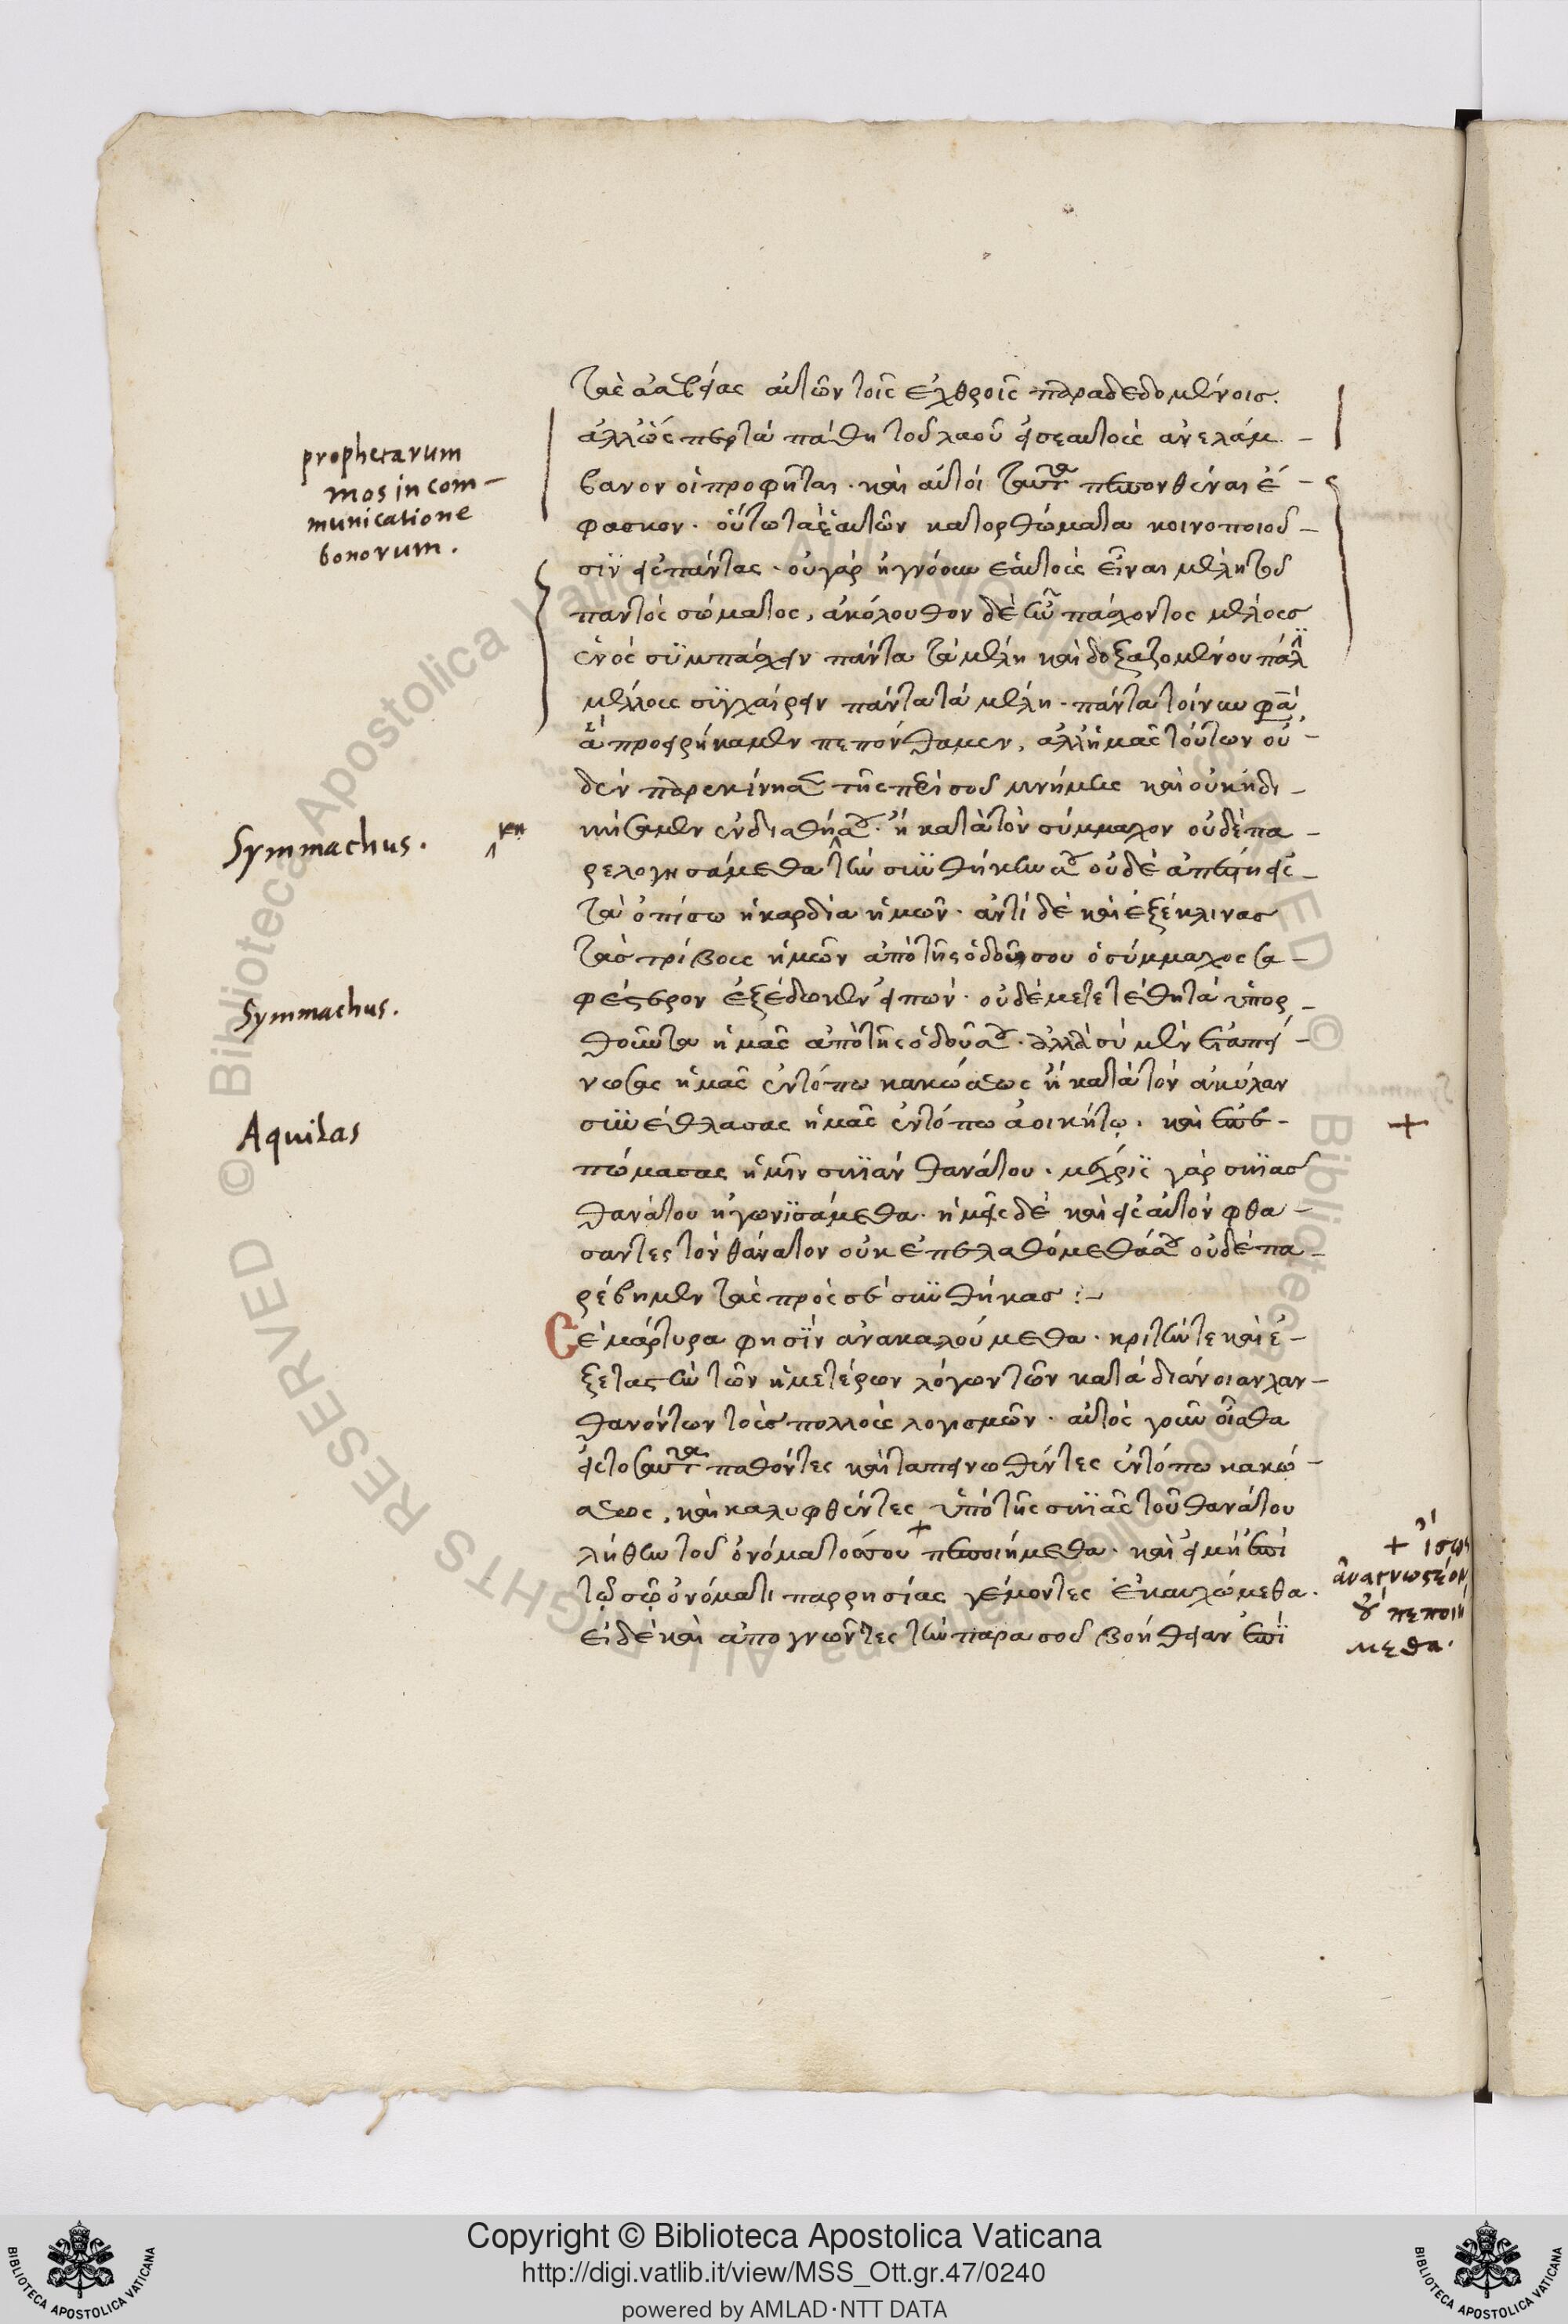 τὰς ἀσεβείας αὐτῶν τοῖς ἐχθροῖς παραδεδομένοις.
ἀλλ' ὥσπερ τὰ πάθη τοῦ λαοῦ εἰς ἑαυτοὺς ἀνελάμ-
prophetarum
mos in com-
municatione
bonorum.
βανον οἱ προφῆται. καὶ αὐτοὶ ταῦτα πεπονθέναι ἔ-
φασκον. οὕτω τὰ ἑαυτῶν κατορθώματα κοινοποιοῦ-
σιν εἰς πάντας. οὐ γὰρ ἠγνόουν ἑαυτοὺς εἶναι μέλη τοῦ
παντὸς σώματος, ἀκόλουθον δὲ ἦν πάσχοντος μέλους
ἑνὸς συμπάσχειν πάντα τὰ μέλη καὶ δοξαζομένου πάλιν
μέλλους συγχαίρειν πάντα τὰ μέλη. πάντα τοίνυν φασὶ
ἃ προειρήκαμεν πεπόνθαμεν, ἀλλ' ἡμᾶς τούτων οὐ-
δὲν παρεκίνησε τῆς περὶ σοῦ μνήμης καὶ οὐκ ἠδι-
Symmachus.
κη
κήσαμεν ἐν διαθήκῃ σου. ἢ κατὰ τὸν σύμμαχον οὐδὲ πα-
ρελογησάμεθα τὴν συνθήκην σου οὐδὲ ἀπέστη εἰς
τὰ ὀπίσω ἡ καρδία ἡμῶν. ἀντὶ δὲ καὶ ἐξέκλινας
τὰς τρίβους ἡμῶν ἀπὸ τῆς ὁδοῦ σου ὁ σύμμαχος σα-
Symmachus.
φέστερον ἐξέδωκεν εἰπών. οὐδὲ μετετέθη τὰ ὑπορ-
θοῦντα ἡμᾶς ἀπὸ τῆς ὁδοῦ σου. ἀλλὰ σὺ μὲν ἐταπεί-
νωσας ἡμᾶς ἐν τόπῳ κακώσεως ἢ κατὰ τὸν ἀκύλαν
Aquilas
συνέθλασας ἡμᾶς ἐν τόπῳ ἀοικήτῳ. καὶ ἐπε-
+
πώμασας ἡμῖν σκιὰν θανάτου. μέχρις γὰρ σκιᾶς
θανάτου ἠγωνισάμεθα. ἡμεῖς δὲ καὶ εἰς αὐτὸν φθά-
σαντες τὸν θάνατον οὐκ ἐπελαθόμεθά σου οὐδὲ πα-
ρέβημεν τὰς πρός σε συνθήκας :-
Σὲ μάρτυρα φησὶν ἀνακαλούμεθα. κριτήν τε καὶ ἐ-
ξεταστὴν τῶν ἡμετέρων λόγων τῶν κατὰ διάνοιαν λαν-
θανόντων τοὺς πολλοὺς λογισμῶν. αὐτὸς γοῦν οἶσθα
εἰ τοσαῦτα παθόντες καὶ ταπεινωθέντες ἐν τόπῳ κακώ-
σεως, καὶ καλυφθέντες ὑπὸ τῆς σκιᾶς τοῦ θανάτου
λήθην τοῦ ὀνόματός σου + πεποιήμεθα. καὶ εἰ μὴ ἐπὶ
τῷ σῷ ὀνόματι παρρησίας γέμοντες ἐκαυχώμεθα.
εἰ δὲ καὶ ἀπογνῶντες τὴν παρὰ σοῦ βοήθειαν ἐπὶ
+ ἴσως
ἀναγνωστέον
οὐ πεποιή
μεθα.
Copyright © Biblioteca Apostolica Vaticana
http://digi.vatlib.it/view/MSS_Ott.gr.47/0240
powered by AMLAD·NTT DATA